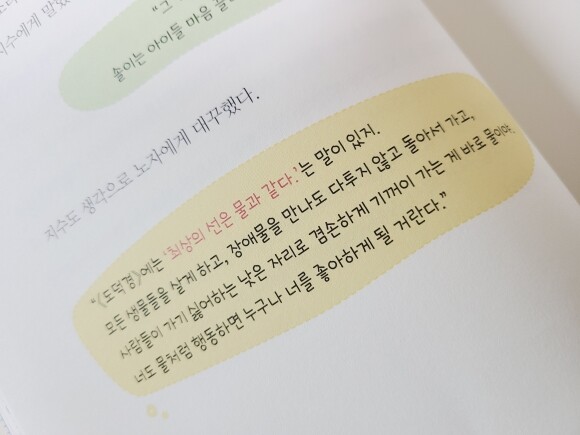 지수에게 말했
"그
솔이는 아이들 마음
지수도 생각으로 노자에게 대꾸했다.
"《도덕경》에는 '최상의 선은 물과 같다.'는 말이 있지.
모든 생물들을 살게 하고, 장애물을 만나도 다투지 않고 돌아서 가고,
사람들이 가기 싫어하는 낮은 자리로 겸손하게 기꺼이 가는 게 바로 물이야.
너도 물처럼 행동하면 누구나 너를 좋아하게 될 거란다."